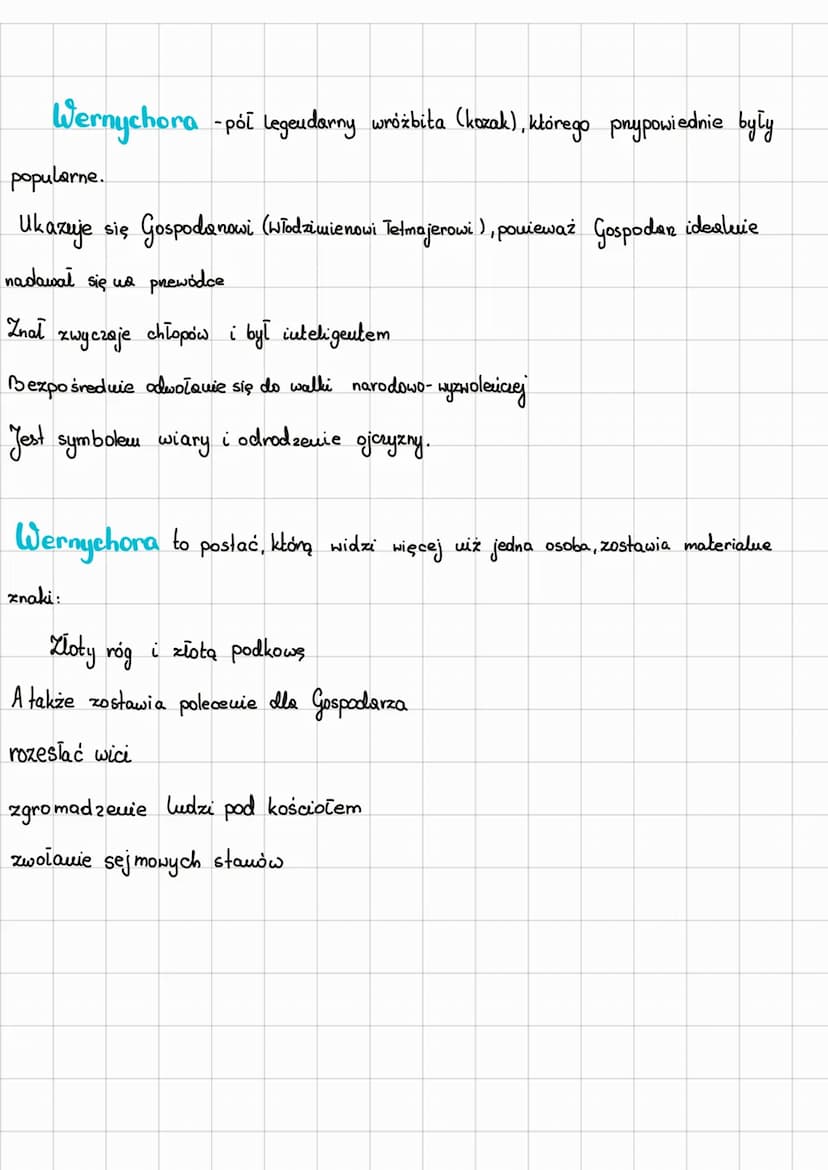 Wernychora - pół legendarny wróżbita (kozak), którego przypowiednie były
popularne.
Ukazuje się Gospodarzowi (Włodzimierzowi Tetmajerowi), ponieważ Gospodarz idealnie
nadawał się na przewódce
Znał zwyczaje chłopów i był inteligentem
Bezpośrednie odwołanie się do walki narodowo-wyzwoleńczej
Jest symbolem wiary i odrodzenie ojczyzny.
Wernychora to postać, którą widzi więcej niż jedna osoba, zostawia materialne
znaki:
Złoty róg i złotą podkowę
A także zostawia polecenie dla Gospodarza
rozesłać wici
zgromadzenie ludzi pod kościołem
zwołanie sejmowych stanów